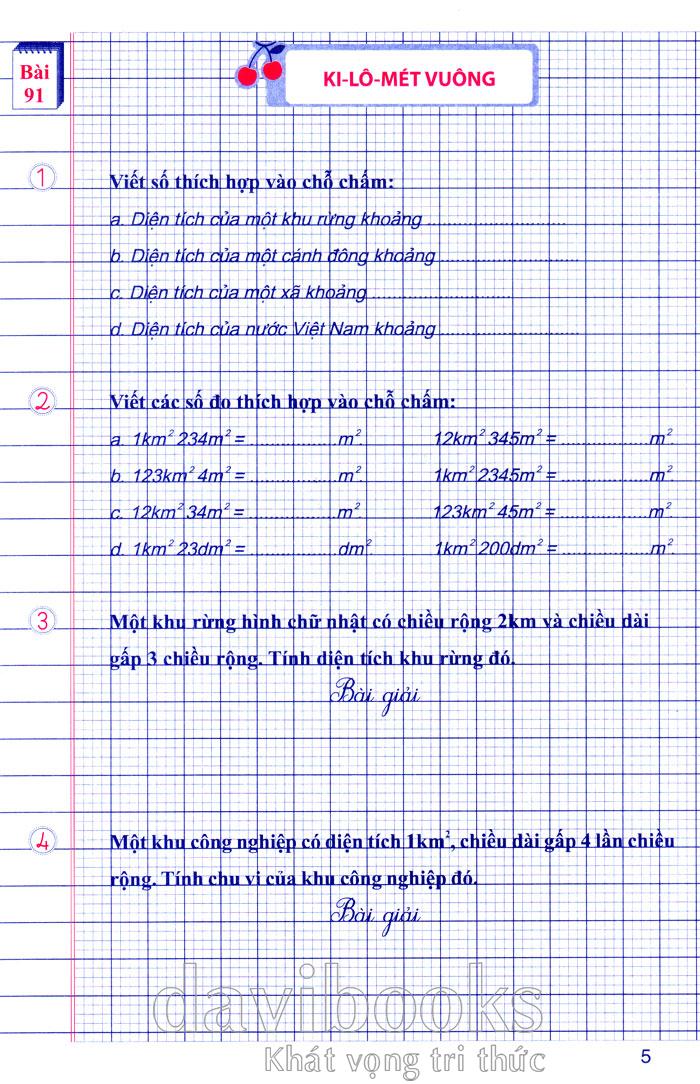 Bài
91
KI-LÔ-MÉT VUÔNG
1
Viết số thích hợp vào chỗ chấm:
a. Diện tích của một khu rừng khoảng ...........................
b. Diện tích của một cánh đồng khoảng ...........................
c. Diện tích của một xã khoảng ...........................
d. Diện tích của nước Việt Nam khoảng ...........................
2
Viết các số đo thích hợp vào chỗ chấm:
a. 1km² 234m² = .................m². 12km² 345m² = .................m².
b. 123km² 4m² = .................m². 1km² 2345m² = .................m².
c. 12km² 34m² = .................m². 123km² 45m² = .................m².
d. 1km² 23dm² = .................dm². 1km² 200dm² = .................m².
3
Một khu rừng hình chữ nhật có chiều rộng 2km và chiều dài
gấp 3 chiều rộng. Tính diện tích khu rừng đó.
Bài giải
4
Một khu công nghiệp có diện tích 1km², chiều dài gấp 4 lần chiều
rộng. Tính chu vi của khu công nghiệp đó.
Bài giải
davibooks
Khát vọng tri thức
5